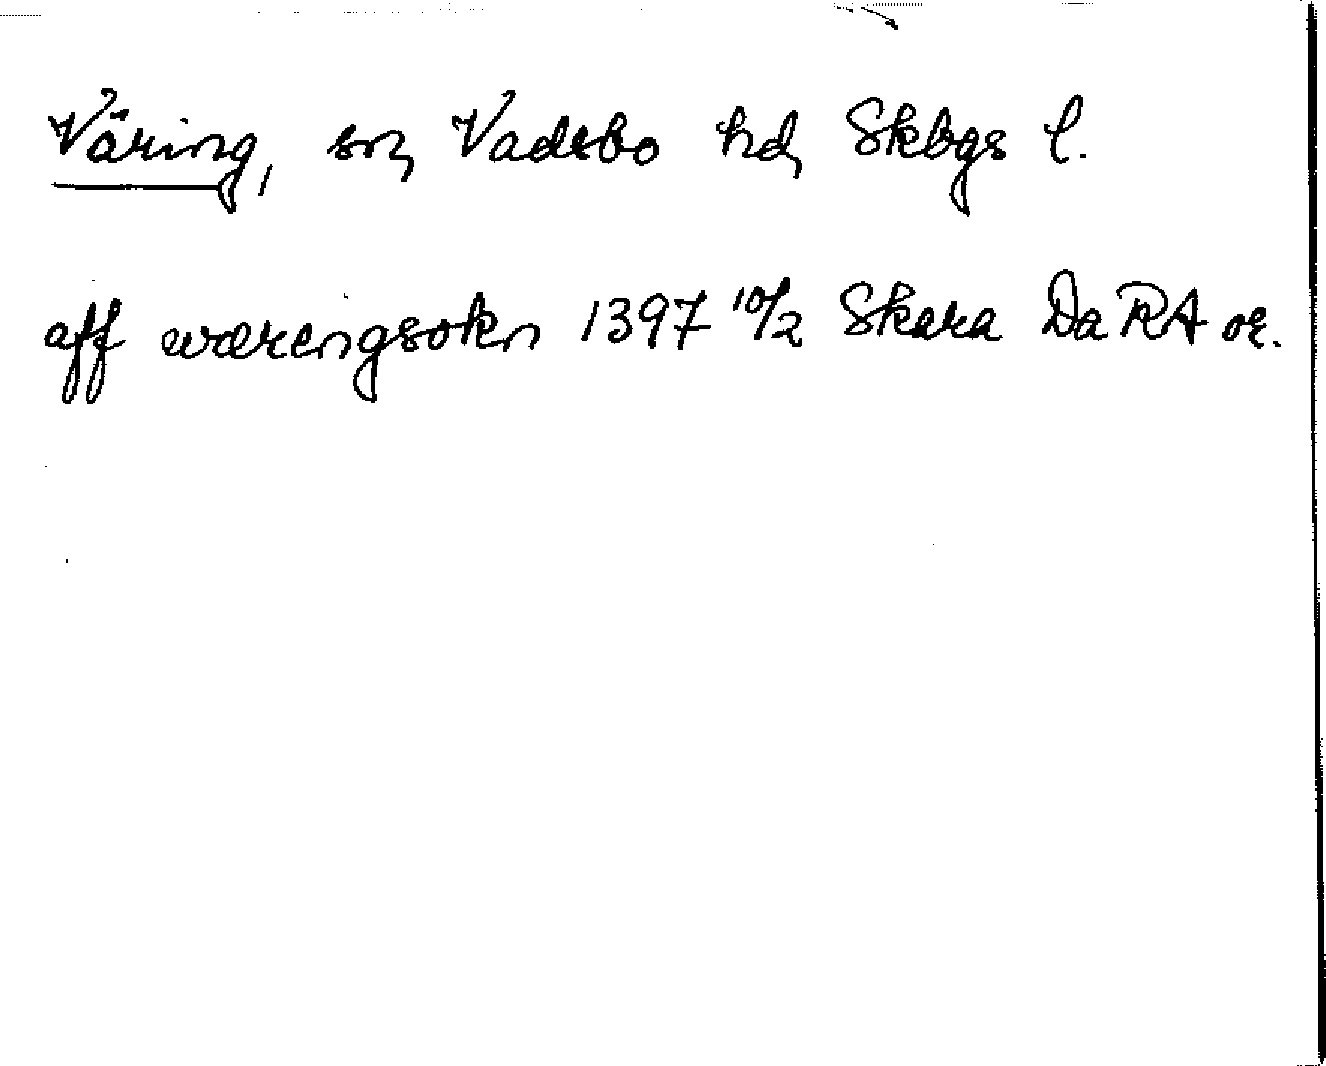 Väring, sn, Vadsbo hd, Skbgs l.
aff wærengsokn 1397 10/2 Skara Da RA or.